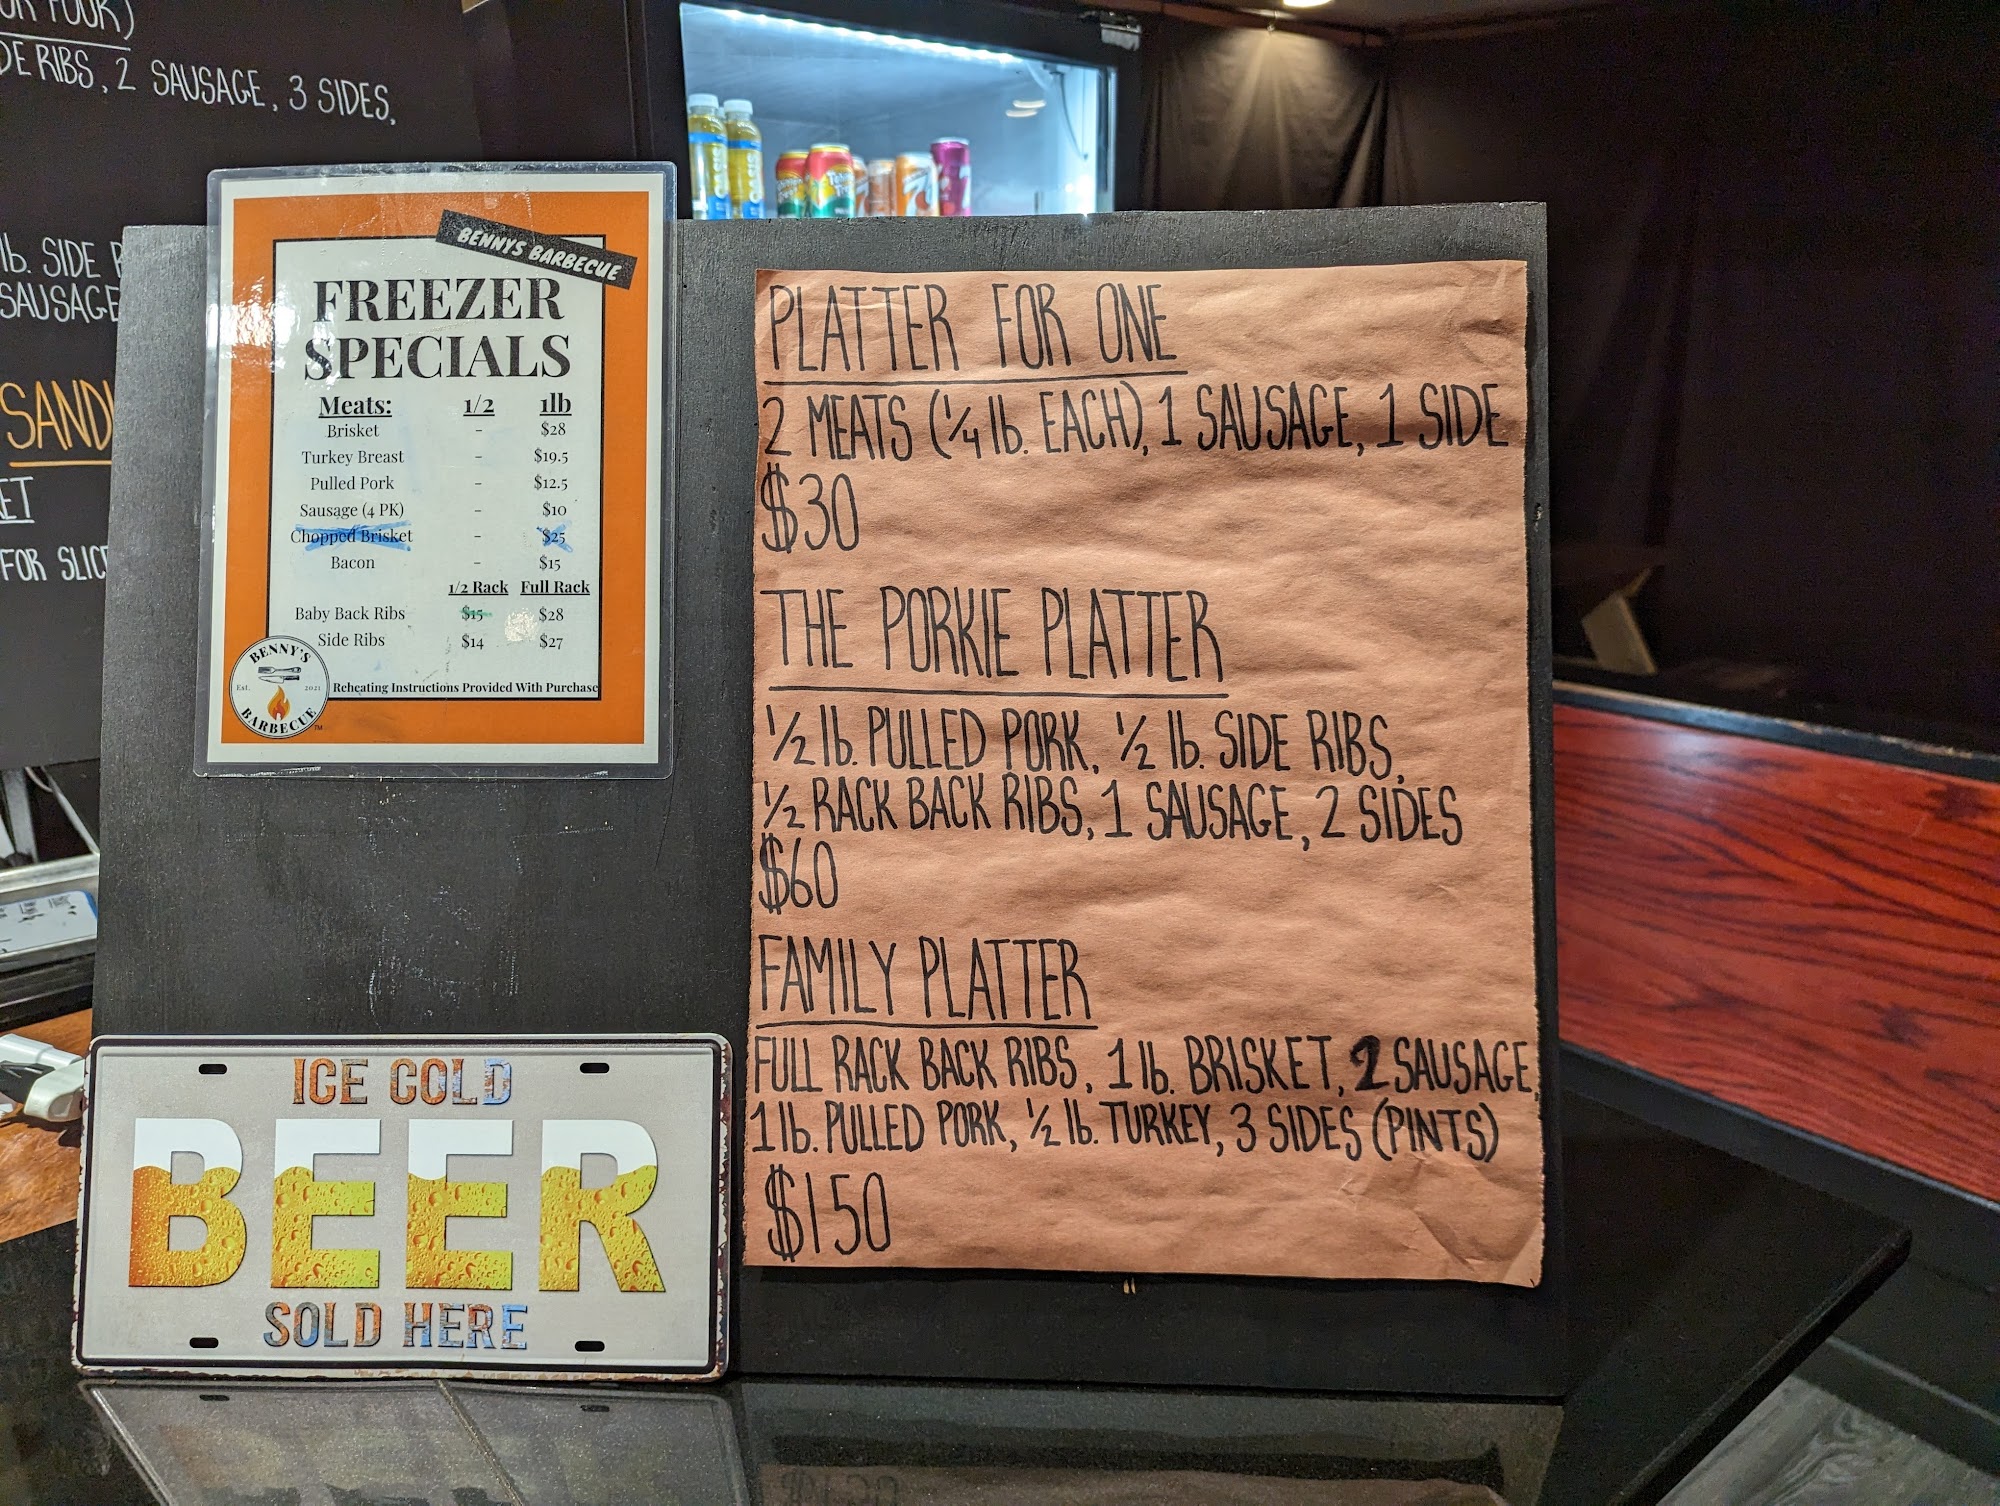 OR FOUR)
DE RIBS, 2 SAUSAGE, 3 SIDES,
lb. SIDE
SAUSAGE
SAND
ET
FOR SLIC
BENNYS BARBECUE
FREEZER
SPECIALS
Meats: 1/2 1lb
Brisket - $28
Turkey Breast - $19.5
Pulled Pork - $12.5
Sausage (4 PK) - $10
Chopped Brisket - $25
Bacon - $15
1/2 Rack Full Rack
Baby Back Ribs $15 $28
Side Ribs $14 $27
Reheating Instructions Provided With Purchase
BENNY'S
EST. 2021
BARBECUE
TM
ICE COLD
BEER
SOLD HERE
PLATTER FOR ONE
2 MEATS (1/4 lb. EACH), 1 SAUSAGE, 1 SIDE
$30
THE PORKIE PLATTER
1/2 lb. PULLED PORK, 1/2 lb. SIDE RIBS,
1/2 RACK BACK RIBS, 1 SAUSAGE, 2 SIDES
$60
FAMILY PLATTER
FULL RACK BACK RIBS, 1 lb. BRISKET, 2 SAUSAGE,
1 lb. PULLED PORK, 1/2 lb. TURKEY, 3 SIDES (PINTS)
$150
OASIS